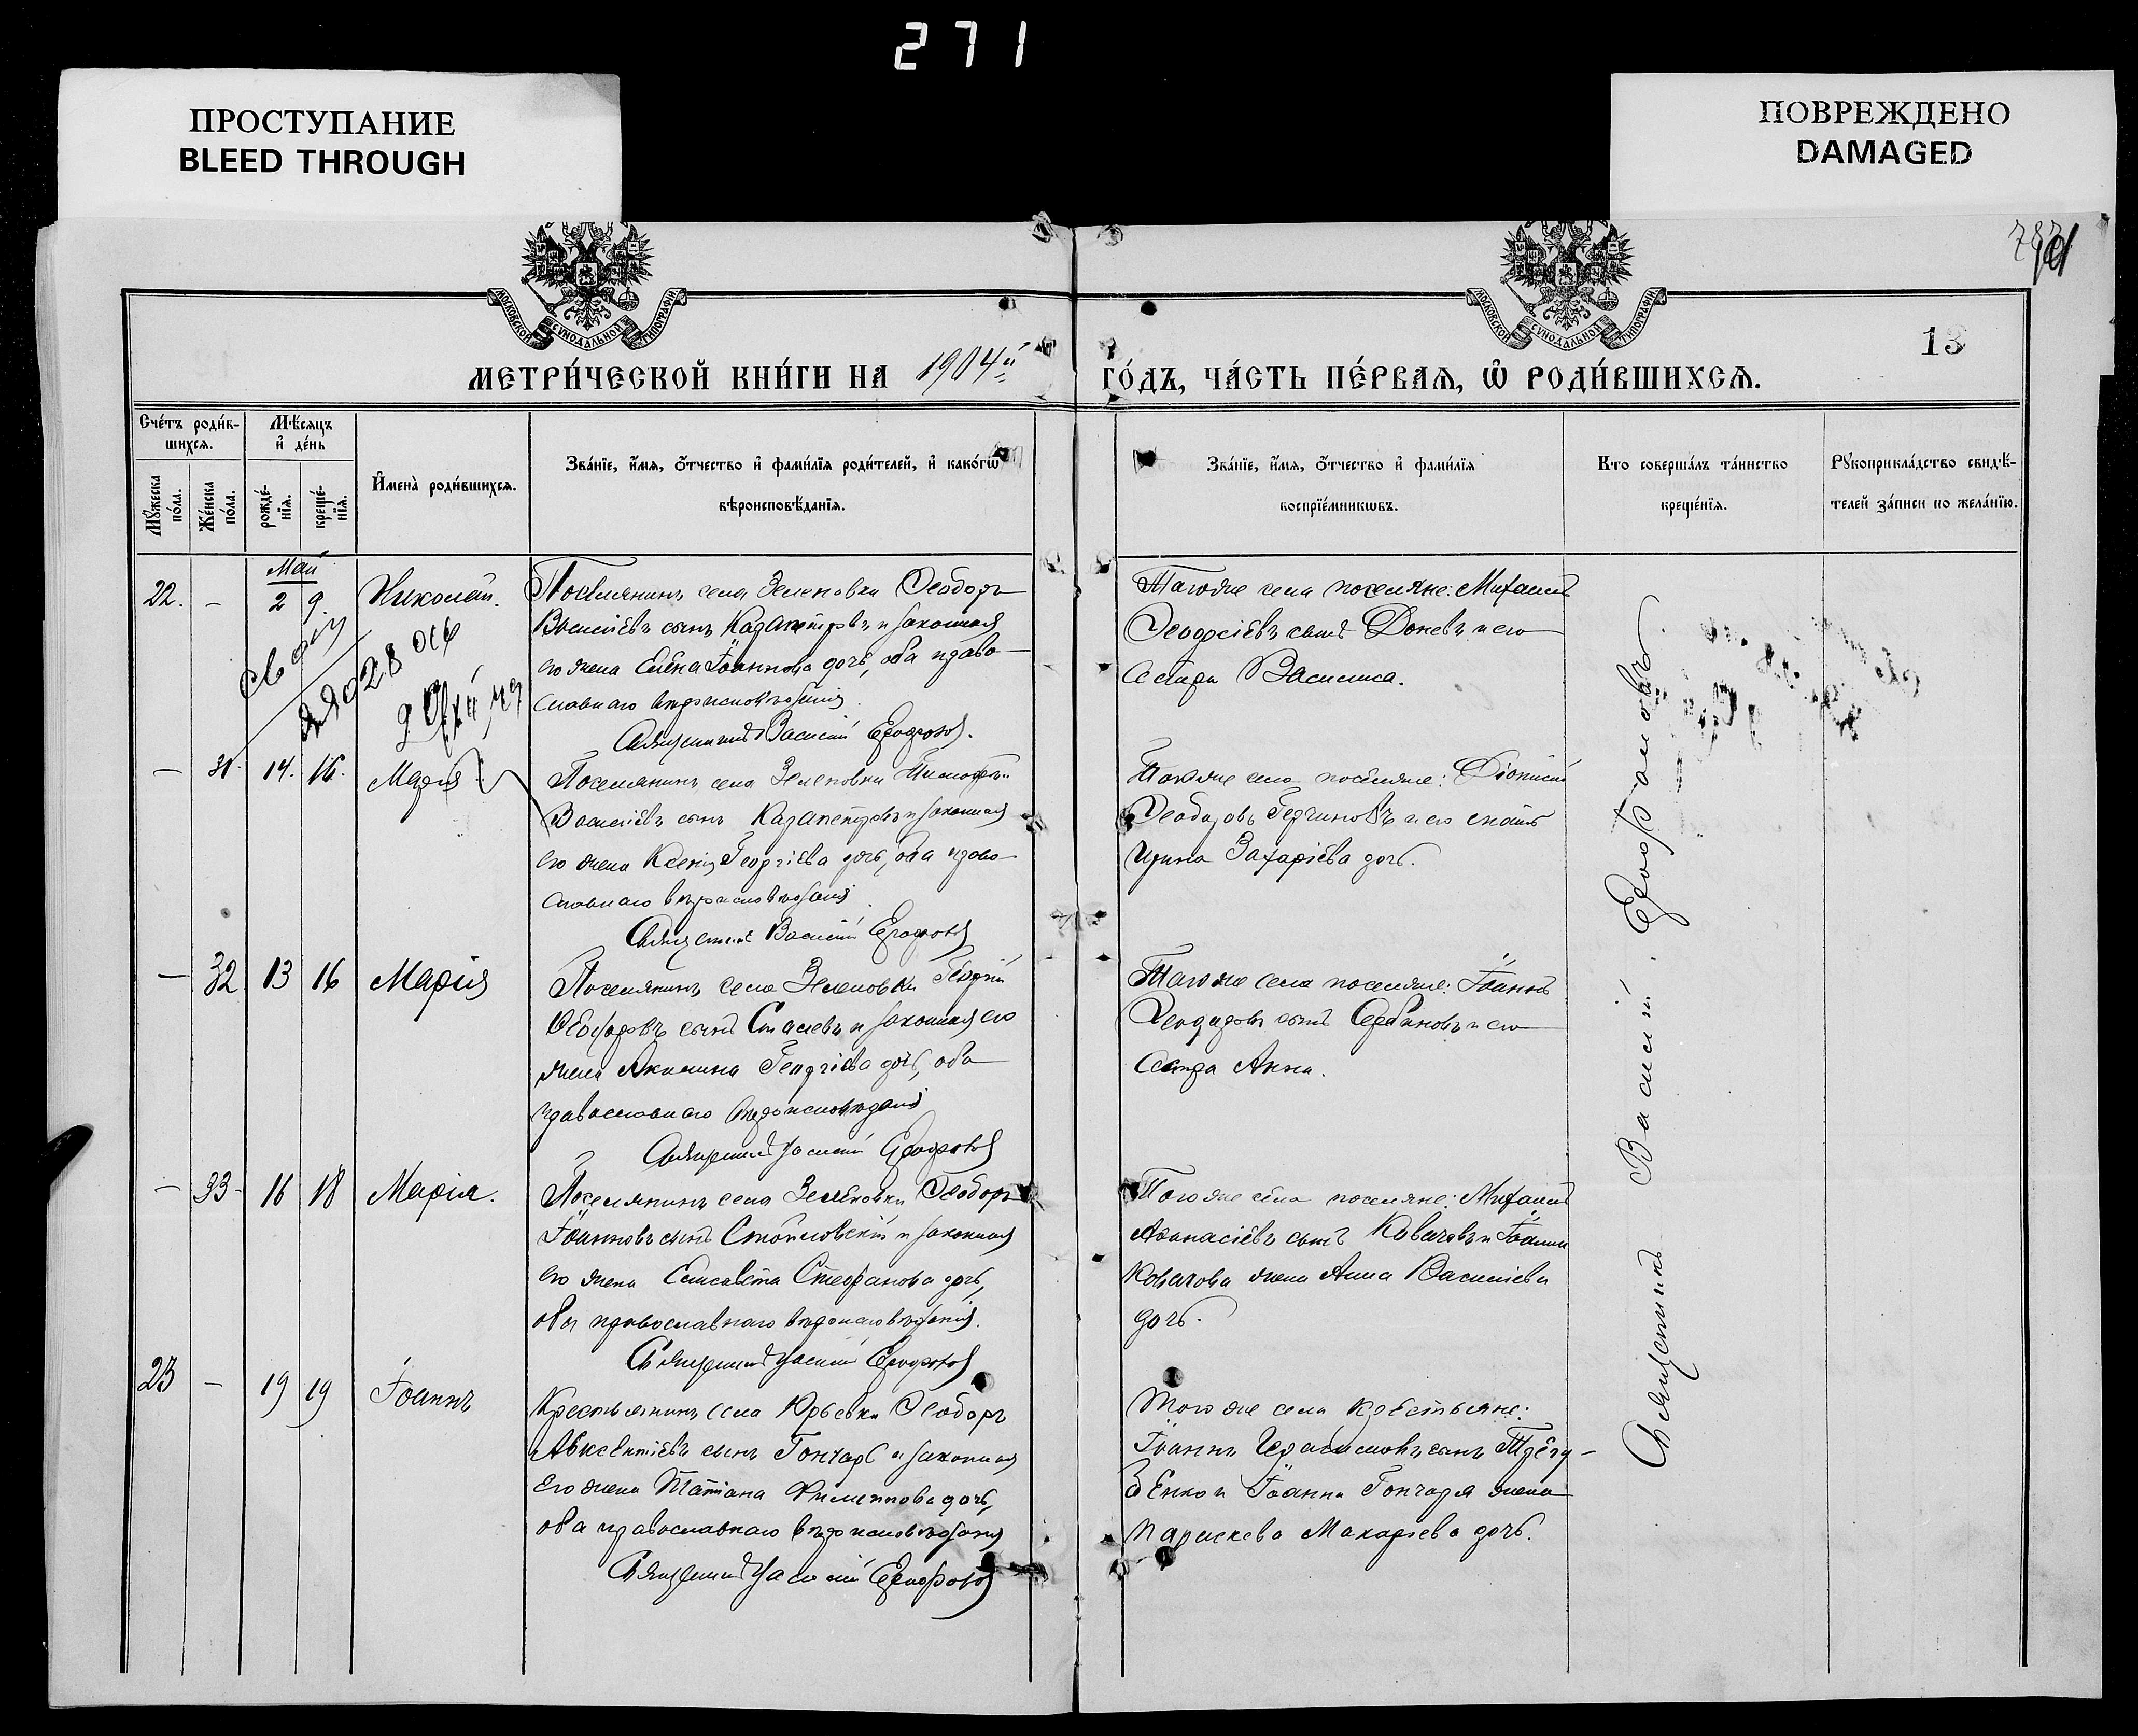 271
ПРОСТУПАНИЕ
BLEED THROUGH
ПОВРЕЖДЕНО
DAMAGED
МОСКОВСКОЙ СУНОДАЛЬНОЙ ТИПОГРАФІИ
МОСКОВСКОЙ СУНОДАЛЬНОЙ ТИПОГРАФІИ
13
МЕТРИ́ЧЕСКОЙ КНИ́ГИ НА 1904й ГО́ДЪ, ЧА́СТЬ ПЕ́РВАѦ, Ѡ҆ РОДИ́ВШИХСѦ.
Сче́тъ роди́в-
шихсѧ.
Мꙋ́жеска по́ла.
Же́нска по́ла.
Мѣ́сѧцъ
и҆ де́нь
рожде́-
нїѧ.
креще́-
нїѧ.
И҆мена̀ роди́вшихсѧ.
Зва́нїе, и҆́мѧ, ѻ҆́тчество и҆ фами́лїѧ роди́телей, и҆ како́гѡ
вѣроисповѣ́данїѧ.
Зва́нїе, и҆́мѧ, ѻ҆́тчество и҆ фами́лїѧ
воспрїе́мникѡвъ.
Кто соверша́лъ та́инство
креще́нїѧ.
Рꙋкоприкла́дство свидѣ́-
телей за́писи по жела́нїю.
Май
22. – 2 9. Николай.
Поселянинъ села Зеленовки Ѳеодоръ
Василіевъ сынъ Казанетровъ и законная
его жена Елена Іоаннова дочь, оба право-
славнаго вѣроисповѣданія.
Священникъ Василій Ерофовъ.
Тогоже села поселяне: Михаилъ
Ѳеодосіевъ сынъ Доневъ и его
сестра Василиса.
– 31. 14. 16. Марія
Поселянинъ села Зеленовки
Василіевъ сынъ Казанетровъ и законная
его жена Ксенія Георгіева дочь, оба право-
славнаго вѣроисповѣданія.
Священникъ Василій Ерофовъ
Тогоже села поселяне: Діонисій
Ѳеодоровъ и его
Ирина Захаріева дочь.
– 32 13 16 Марія
Поселянинъ села Зеленовки Георгій
Ѳеодоровъ сынъ Станевъ и законная его
жена Акилина Георгіева дочь, оба
православнаго вѣроисповѣданія
Священникъ Василій Ерофовъ
Тогоже села поселяне: Іоаннъ
Ѳеодоровъ сынъ Сербиновъ и его
сестра Анна.
– 33 – 16 18 Марія.
Поселянинъ села Зеленовки Ѳеодоръ
Іоанновъ сынъ Стояновскій и законная
его жена Елисавета Стефанова дочь,
оба православнаго вѣроисповѣданія.
Священникъ Василій Ерофовъ
Тогоже села поселяне: Михаилъ
Аѳанасіевъ сынъ Ковачовъ и Іоанна
Ковачова жена Анна Василіева
дочь.
23 – 19 19 Іоаннъ
Крестьянинъ села Юрьевки Ѳеодоръ
Авксентіевъ сынъ Гончаръ и законная
его жена Татіана Филиппова дочь,
оба православнаго вѣроисповѣданія
Священникъ Василій Ерофовъ
Тогоже села крестьяне:
Іоаннъ Герасимовъ сынъ Трегу-
бенко и Іоанна Гончаря жена
Параскева Макаріева дочь.
Священникъ Василій